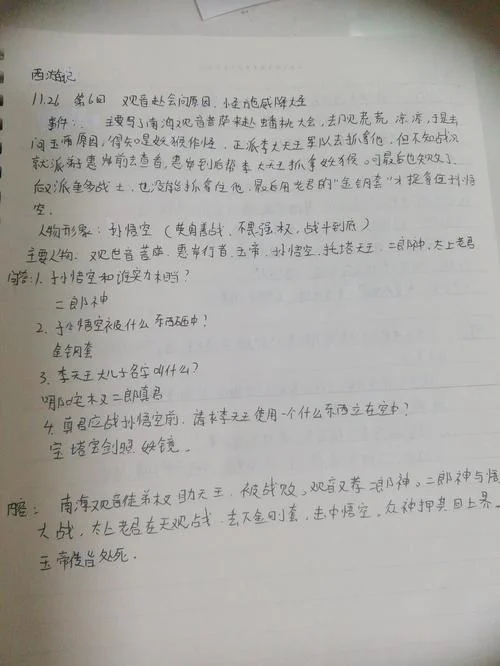 西游记
11.26 第6回 观音赴会问原因,小圣施威降大圣
事件: 主要写了南海观音菩萨来赴蟠桃大会,去见荒荒凉凉,于是去
问玉帝原因,得知是妖猴作怪,正派李大天王军以去抓拿他,但不知战况
就派弟子惠岸前去查看,惠岸到后帮李大天王抓拿妖猴。可最后也失败了。
后又派垂多战士,也没能抓拿住他,最后用老君的"金钥套"才捉拿住孙悟
空。
人物形象:孙悟空(英勇善战,不畏强权,战斗到底)
主要人物:观世音菩萨、惠岸行者、玉帝、孙悟空、托塔天王、二郎神、太上老君
问答:1.孙悟空和谁实力相当?
二郎神
2.孙悟空被什么东西砸中?
金钥套
3.李天王大儿子名字叫什么?
木叉二郎真君
4.真君应战孙悟空前,请求李天王使用一个什么东西立在空中?
宝塔宝剑照妖镜。
内容:南海观音徒弟木叉助天王,被战败。观音又荐二郎神。二郎神与悟
大战,太上老君在天观战,去下金刚套,击中悟空。众神押其回上界。
玉帝传旨处死.